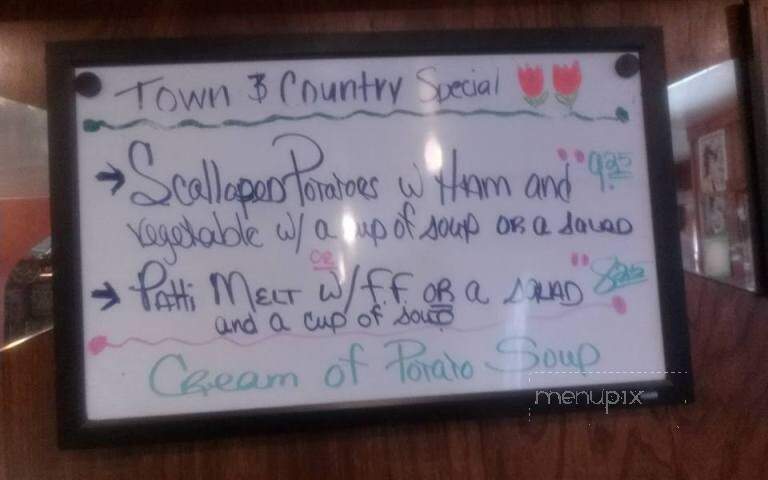 Town & Country Special
→ Scalloped Potatoes w Ham and 9.25
vegetable w/ a cup of soup or a salad
or
→ Patti Melt w/ f.f. or a salad 8.25
and a cup of soup
Cream of Potato Soup
menupix